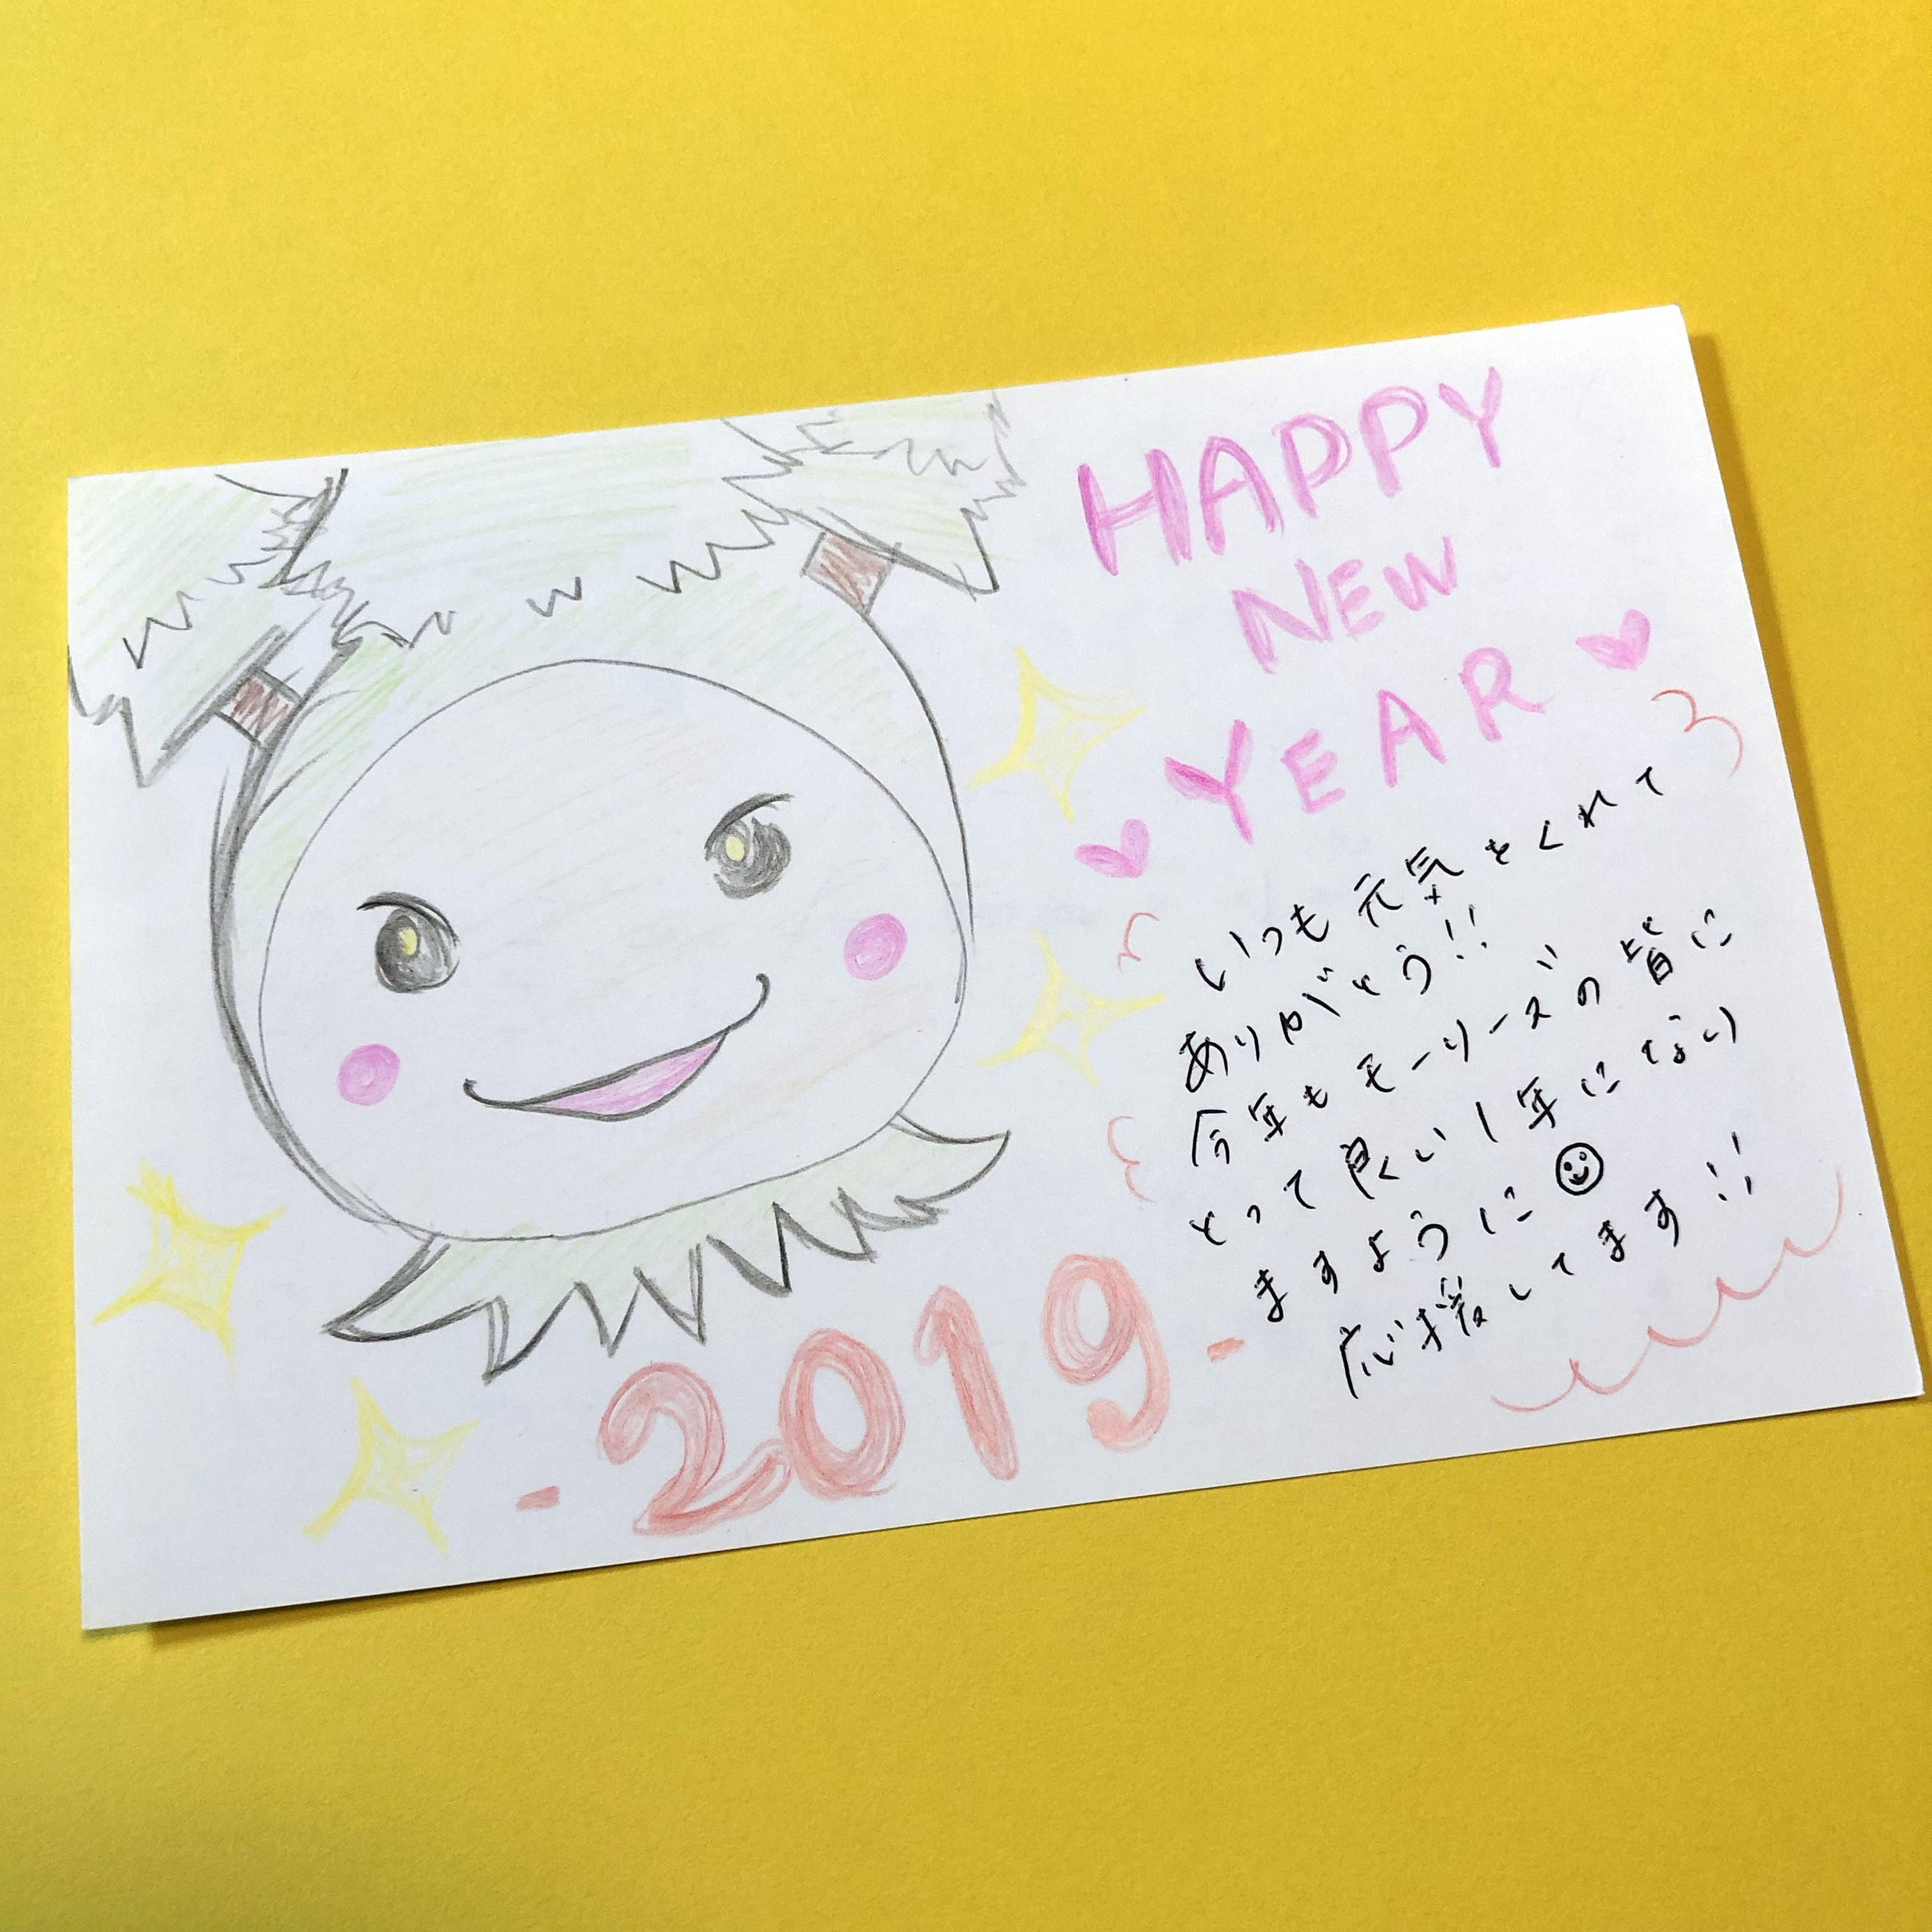 HAPPY
NEW
YEAR
いつも元気をくれて
ありがとう!!
今年もモーリーズの皆に
とって良い1年になり
ますように
応援してます!!
-2019-